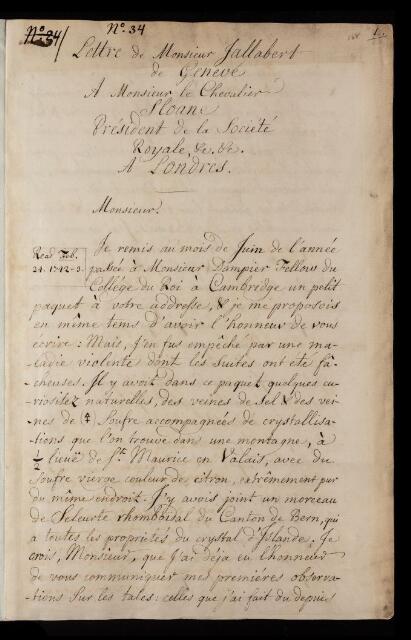 N.º 34
N.º 34
1.
Lettre de Monsieur Jallabert
de Geneve
A Monsieur le Chevalier
Sloane
Président de la Societé
Royale, &c. &c.
A Londres.
Monsieur.
Je remis au mois de Juin de l'année
Read Feb.
24. 1742-3.
passée à Monsieur Dampier Fellow du
Collége du Roi à Cambridge un petit
paquet à votre addresse, & je me proposois
en même tems d'avoir l'honneur de vous
écrire: Mais, j'en fus empêché par une ma-
-ladie violente dont les suites ont eté fâ-
cheuses. Il y avoit dans ce paquet quelques cu-
riositez naturelles, des veines de Sel & des vei-
nes de (4) Soufre accompagnées de crystallisa-
-tions que l'on trouve dans une montagne, à
½ lieuë de S.t Maurice en Valais, avec du
Soufre vierge couleur de citron, extrêmement pur
du même endroit. J'y avois joint un morceau
de Seleurte rhomboidal du Canton de Bern, qui
a toutes les propriétés du crystal d'Islande. Je
crois, Monsieur, que j'ai déja eu l'honneur
de vous communiquer mes premiéres observa-
-tions sur les tales: celles que j'ai fait du depuis